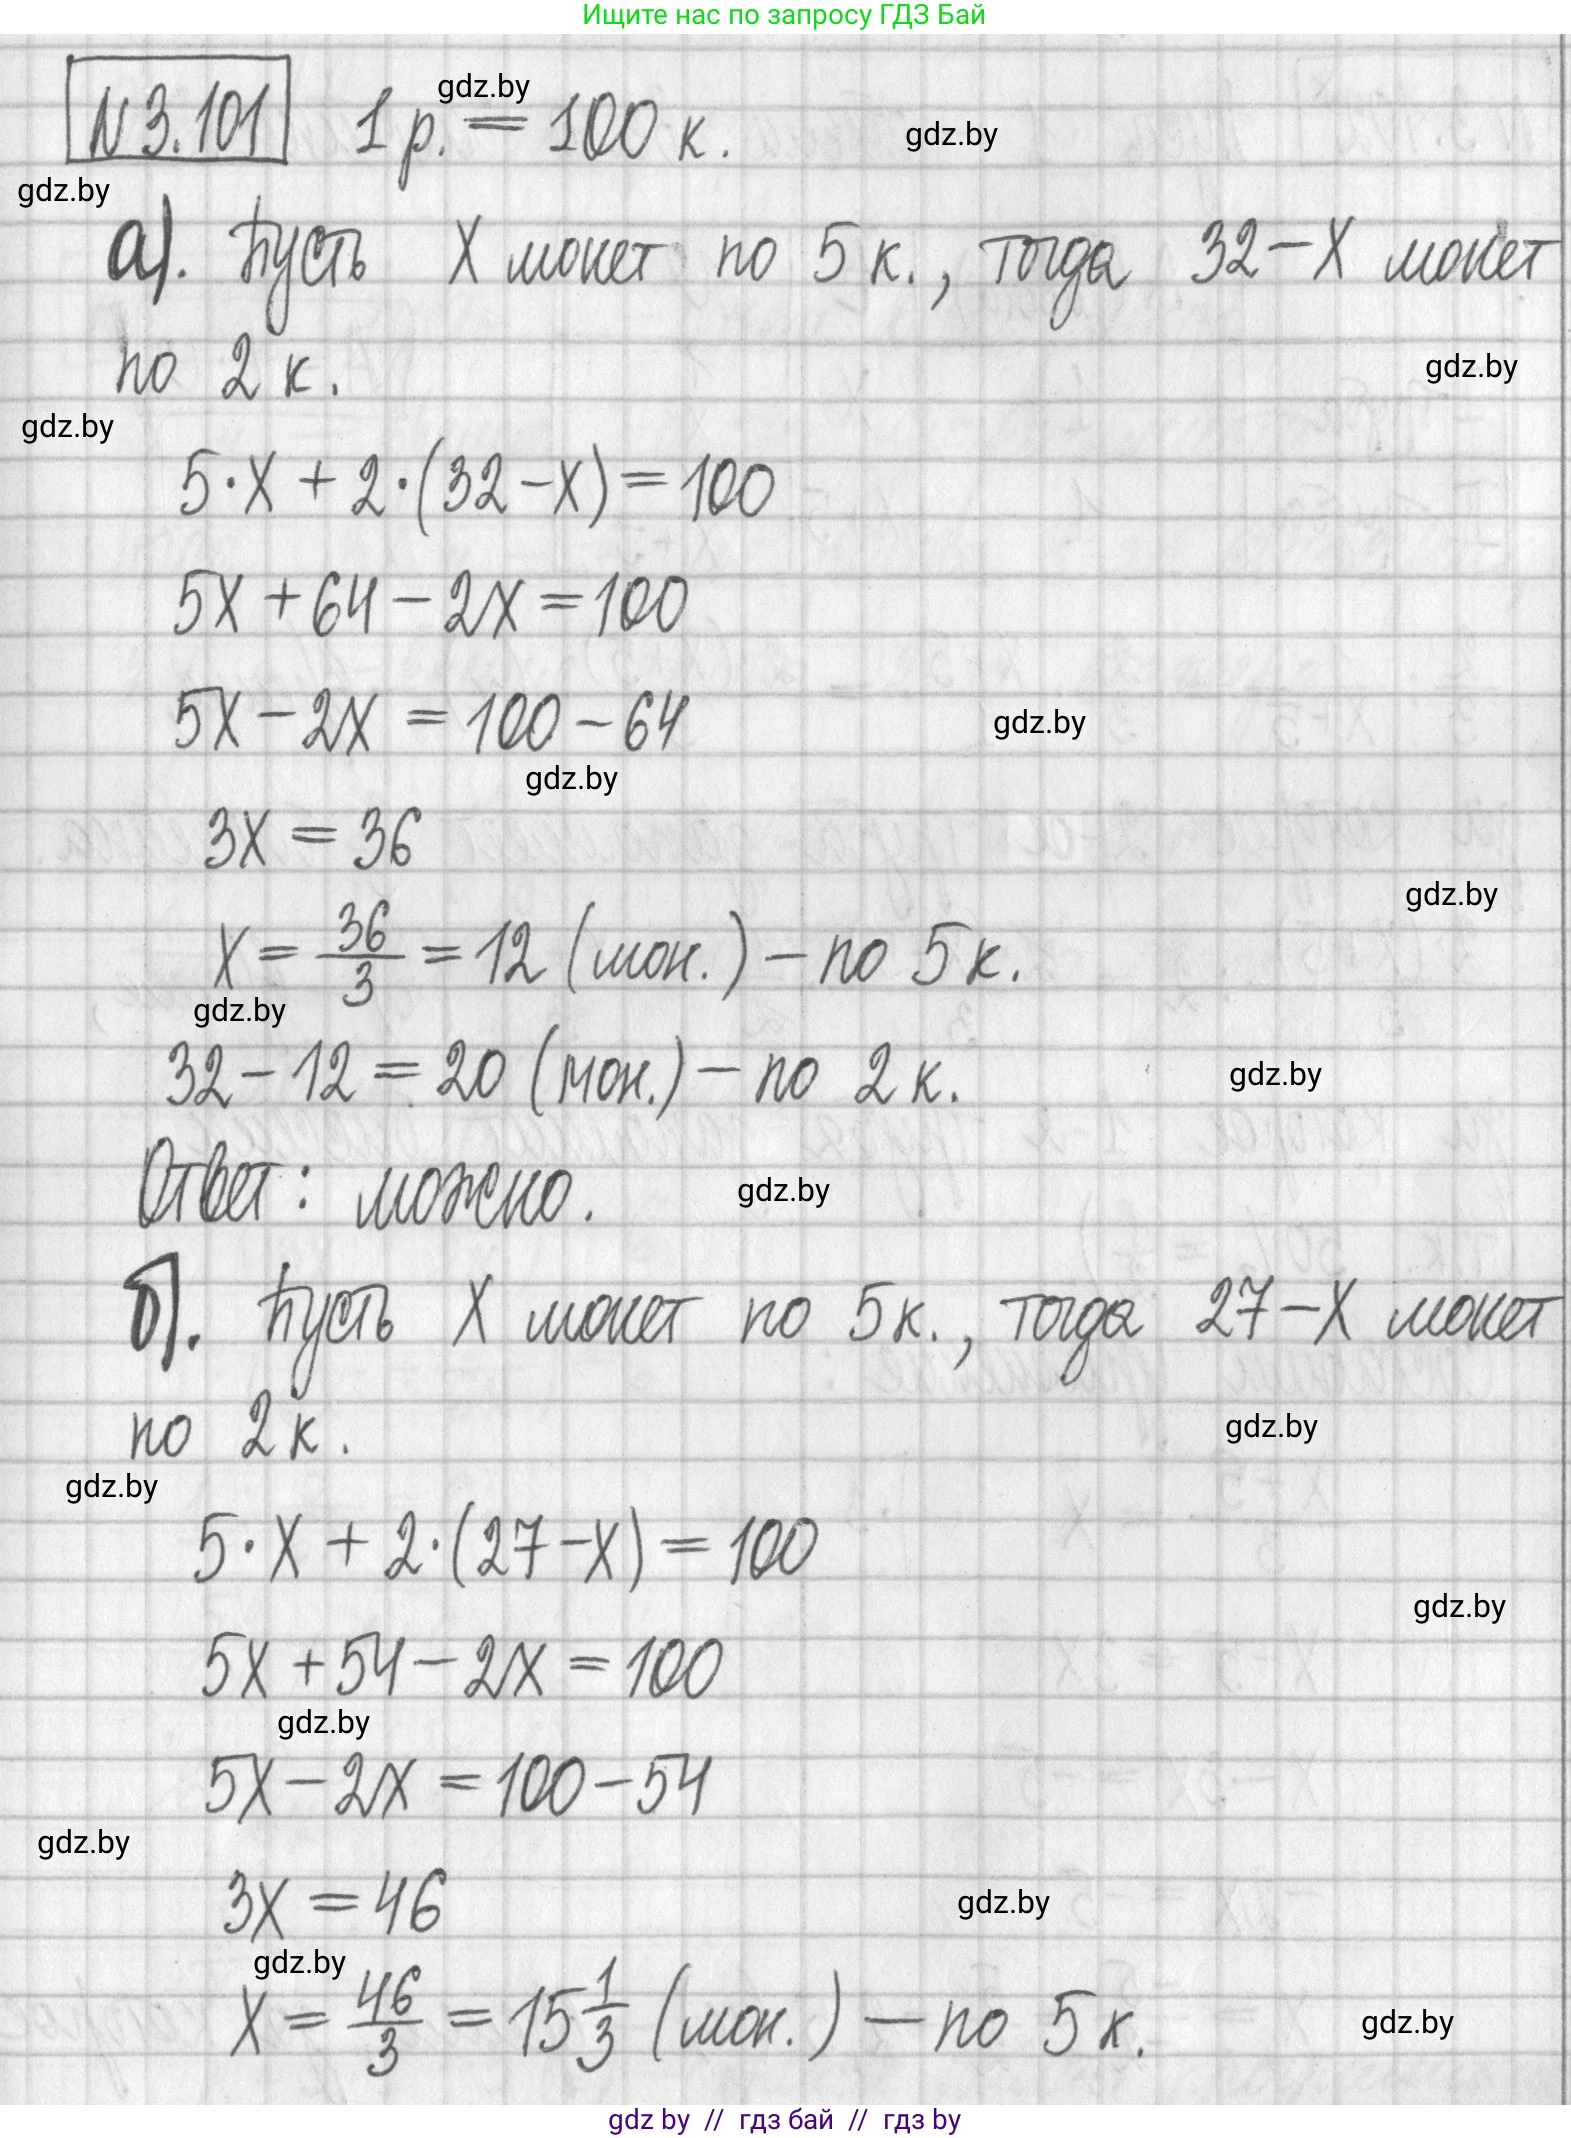 Ищите нас по запросу ГДЗ Бай
N 3.101 1 р. = 100 к.
gdz.by
gdz.by
gdz.by
а). Пусть X монет по 5 к., тогда 32 - X монет
по 2 к.
gdz.by
gdz.by
5 · X + 2 · (32 - X) = 100
5X + 64 - 2X = 100
5X - 2X = 100 - 64
gdz.by
gdz.by
3X = 36
gdz.by
X = 36/3 = 12 (мон.) - по 5 к.
gdz.by
32 - 12 = 20 (мон.) - по 2 к.
gdz.by
Ответ: можно.
gdz.by
б). Пусть X монет по 5 к., тогда 27 - X монет
по 2 к.
gdz.by
gdz.by
5 · X + 2 · (27 - X) = 100
gdz.by
5X + 54 - 2X = 100
gdz.by
5X - 2X = 100 - 54
gdz.by
3X = 46
gdz.by
gdz.by
X = 46/3 = 15 1/3 (мон.) - по 5 к.
gdz.by
gdz by // гдз бай // гдз by